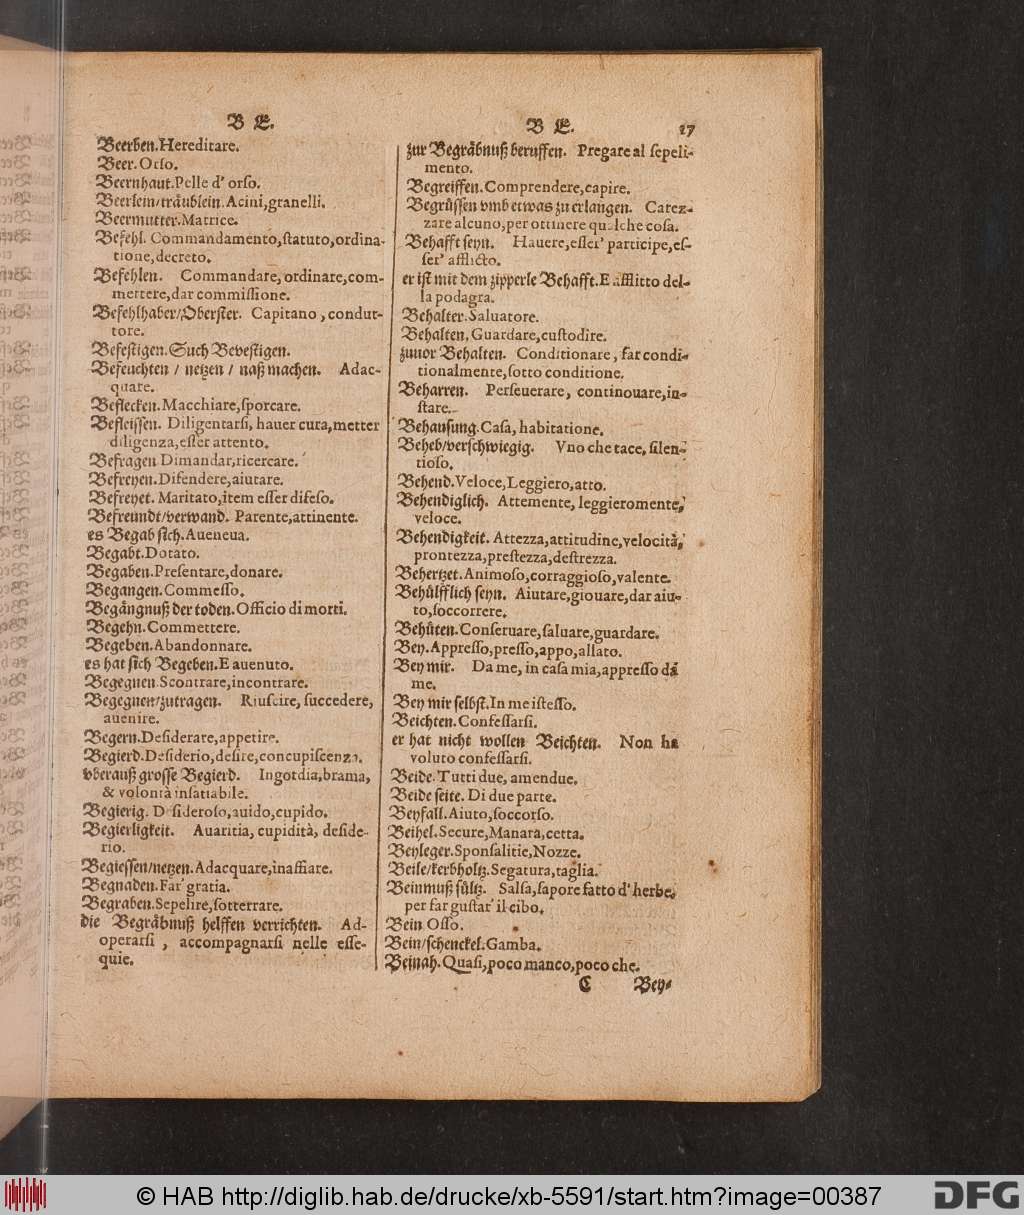 B E.
Beerben. Hereditare.
Beer. Orso.
Beernhaut. Pelle d' orſo.
Beerlein/träublein. Acini, granelli.
Beermutter. Matrice.
Befehl. Commandamento, ſtatuto, ordina-
tione, decreto.
Befehlen. Commandare, ordinare, com-
mettere, dar commiſſione.
Befehlhaber/Oberſter. Capitano, condut-
tore.
Befeſtigen. Such Beveſtigen.
Befeuchten / netzen / naß machen. Adac-
quare.
Beflecken. Macchiare, ſporcare.
Befleiſſen. Diligentarſi, hauer cura, metter
diligenza, eſſer attento.
Befragen Dimandar, ricercare.
Befreyen. Difendere, aiutare.
Befreyet. Maritato, item eſſer difeſo.
Befreundt/verwand. Parente, attinente.
es Begab ſich. Aueneua.
Begabt. Dotato.
Begaben. Preſentare, donare.
Begangen. Commeſſo.
Begängnuß der toden. Officio di morti.
Begehn. Commettere.
Begeben. Abandonnare.
es hat ſich Begeben. E auenuto.
Begegnen. Scontrare, incontrare.
Begegnen/zutragen. Riuſcire, ſuccedere,
auenire.
Begern. Deſiderare, appetire.
Begierd. Deſiderio, deſire, concupiſcenza.
vberauß groſſe Begierd. Ingordia, brama,
& volontà inſatiabile.
Begierig. Deſideroſo, auido, cupido.
Begierligkeit. Auaritia, cupidità, deſide-
rio.
Begieſſen/netzen. Adacquare, inaffiare.
Begnaden. Far' gratia.
Begraben. Sepelire, ſotterrare.
die Begräbnuß helffen verrichten. Ad-
operarſi, accompagnarſi nelle eſſe-
quie.
B E. 17
zur Begräbnuß beruffen. Pregare al ſepeli-
mento.
Begreiffen. Comprendere, capire.
Begrüſſen vmb etwas zu erlangen. Carez-
zare alcuno, per ottinere qualche coſa.
Behafft ſeyn. Hauere, eſſer' participe, eſ-
ſer' afflicto.
er iſt mit dem zipperle Behafft. E afflitto del-
la podagra.
Behalter. Saluatore.
Behalten, Guardare, cuſtodire.
zuuor Behalten. Conditionare, far condi-
tionalmente, ſotto conditione.
Beharren. Perſeuerare, continouare, in-
ſtare.
Behauſung. Caſa, habitatione.
Beheb/verſchwiegig. Vno che tace, ſilen-
tioſo.
Behend. Veloce, Leggiero, atto.
Behendiglich. Attemente, leggieromente,
veloce.
Behendigkeit. Attezza, attitudine, velocità,
prontezza, preſtezza, deſtrezza.
Behertzet. Animoſo, corraggioſo, valente.
Behülfflich ſeyn. Aiutare, giouare, dar aiu-
to, ſoccorrere.
Behüten. Conſeruare, ſaluare, guardare.
Bey. Appreſſo, preſſo, appo, allato.
Bey mir. Da me, in caſa mia, appreſſo da
me.
Bey mir ſelbſt. In me iſteſſo.
Beichten. Confeſſarſi.
er hat nicht wollen Beichten. Non ha
voluto confeſſarſi.
Beide. Tutti due, amendue.
Beide ſeite. Di due parte.
Beyfall. Aiuto, ſoccorſo.
Beihel. Secure, Manara, cetta.
Beyleger. Sponſalitie, Nozze.
Beile/kerbholtz. Segatura, taglia.
Beinmuß ſültz. Salſa, ſapore fatto d' herbe,
per far guſtar' il cibo.
Bein Oſſo.
Bein/ſchenckel. Gamba.
Beinah. Quaſi, poco manco, poco che.
C Bey-
© HAB http://diglib.hab.de/drucke/xb-5591/start.htm?image=00387
DFG